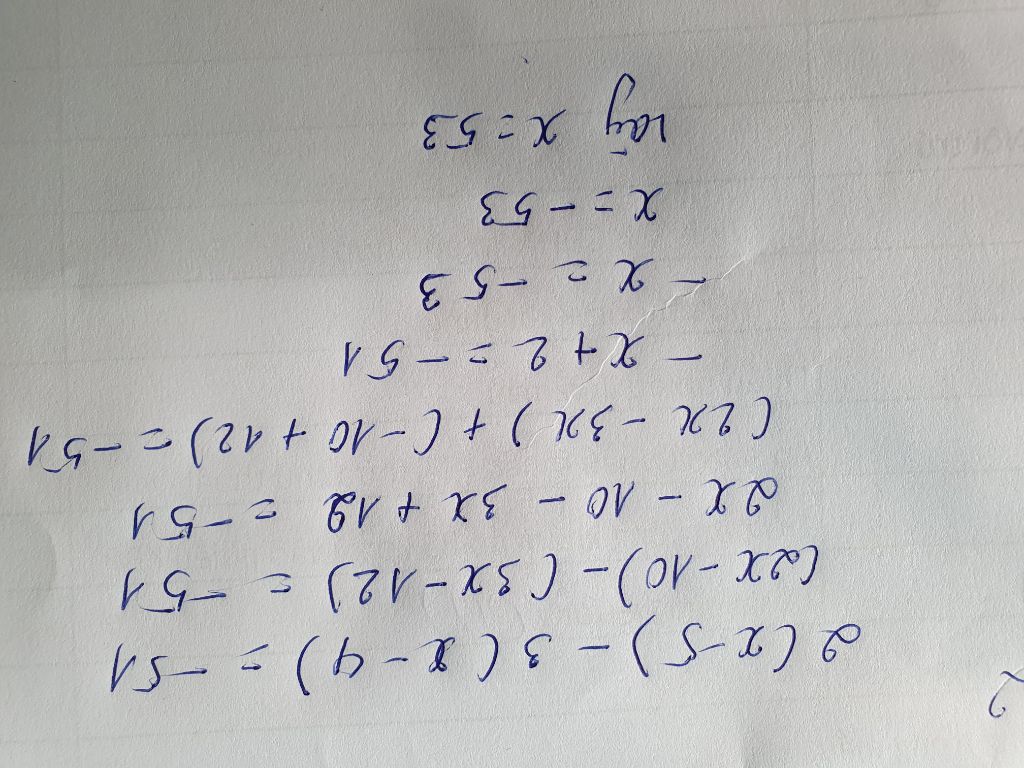 2(x-5) - 3(x-4) = -51
(2x-10) - (3x-12) = -51
2x - 10 - 3x + 12 = -51
(2x - 3x) + (-10 + 12) = -51
- x + 2 = -51
- x = -53
x = -53
vậy x = 53